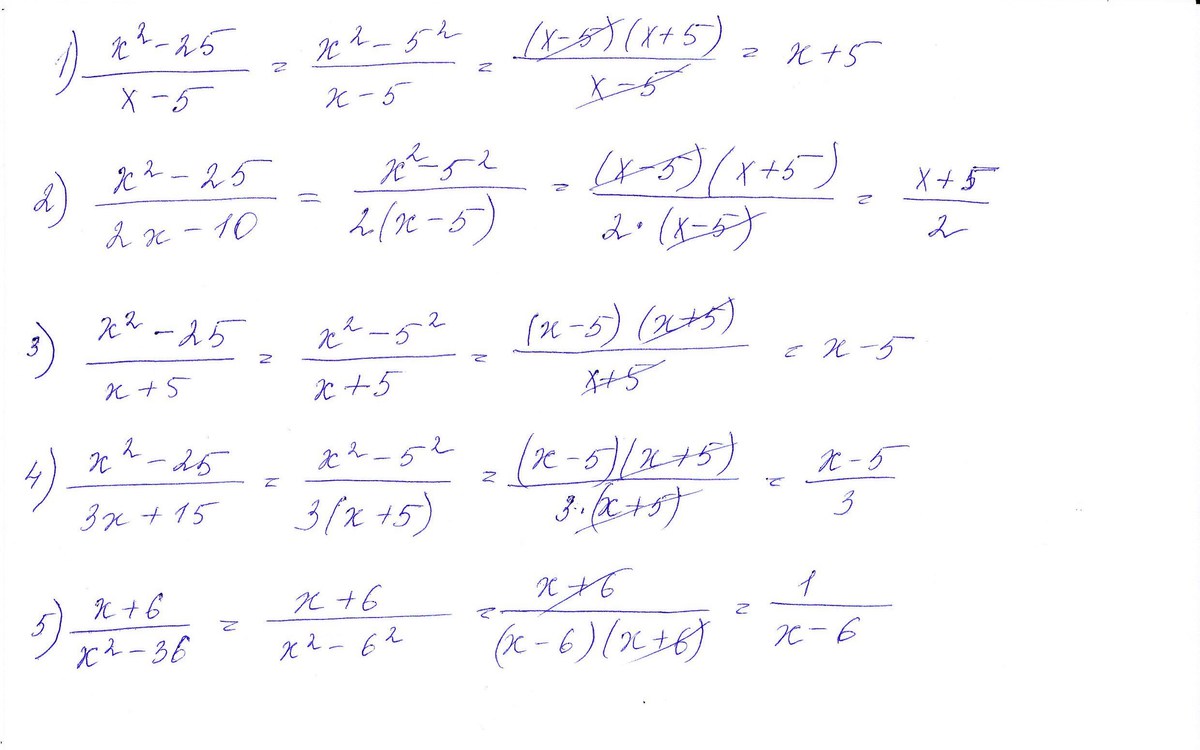 1) (x²-25)/(x-5) = (x²-5²)/(x-5) = ((x-5)(x+5))/(x-5) = x+5
2) (x²-25)/(2x-10) = (x²-5²)/(2(x-5)) = ((x-5)(x+5))/(2·(x-5)) = (x+5)/2
3) (x²-25)/(x+5) = (x²-5²)/(x+5) = ((x-5)(x+5))/(x+5) = x-5
4) (x²-25)/(3x+15) = (x²-5²)/(3(x+5)) = ((x-5)(x+5))/(3·(x+5)) = (x-5)/3
5) (x+6)/(x²-36) = (x+6)/(x²-6²) = (x+6)/((x-6)(x+6)) = 1/(x-6)